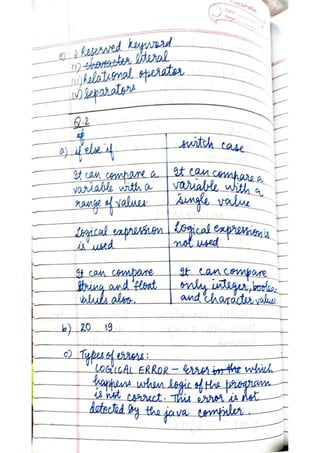 e) i) Reserved keyword
ii) character literal
iii) Relational operator
iv) Separators
Q.2
a) if else if
switch case
It can compare a variable with a range of values
It can compare a variable with a single value
Logical expression is used
Logical expression is not used
It can compare string and float values also.
It can compare only integer, boolean and character values
b) 20 19
c) Types of errors:
LOGICAL ERROR - Error in the which
happens when logic of the program
is not correct. This error is not
detected by the java compiler.